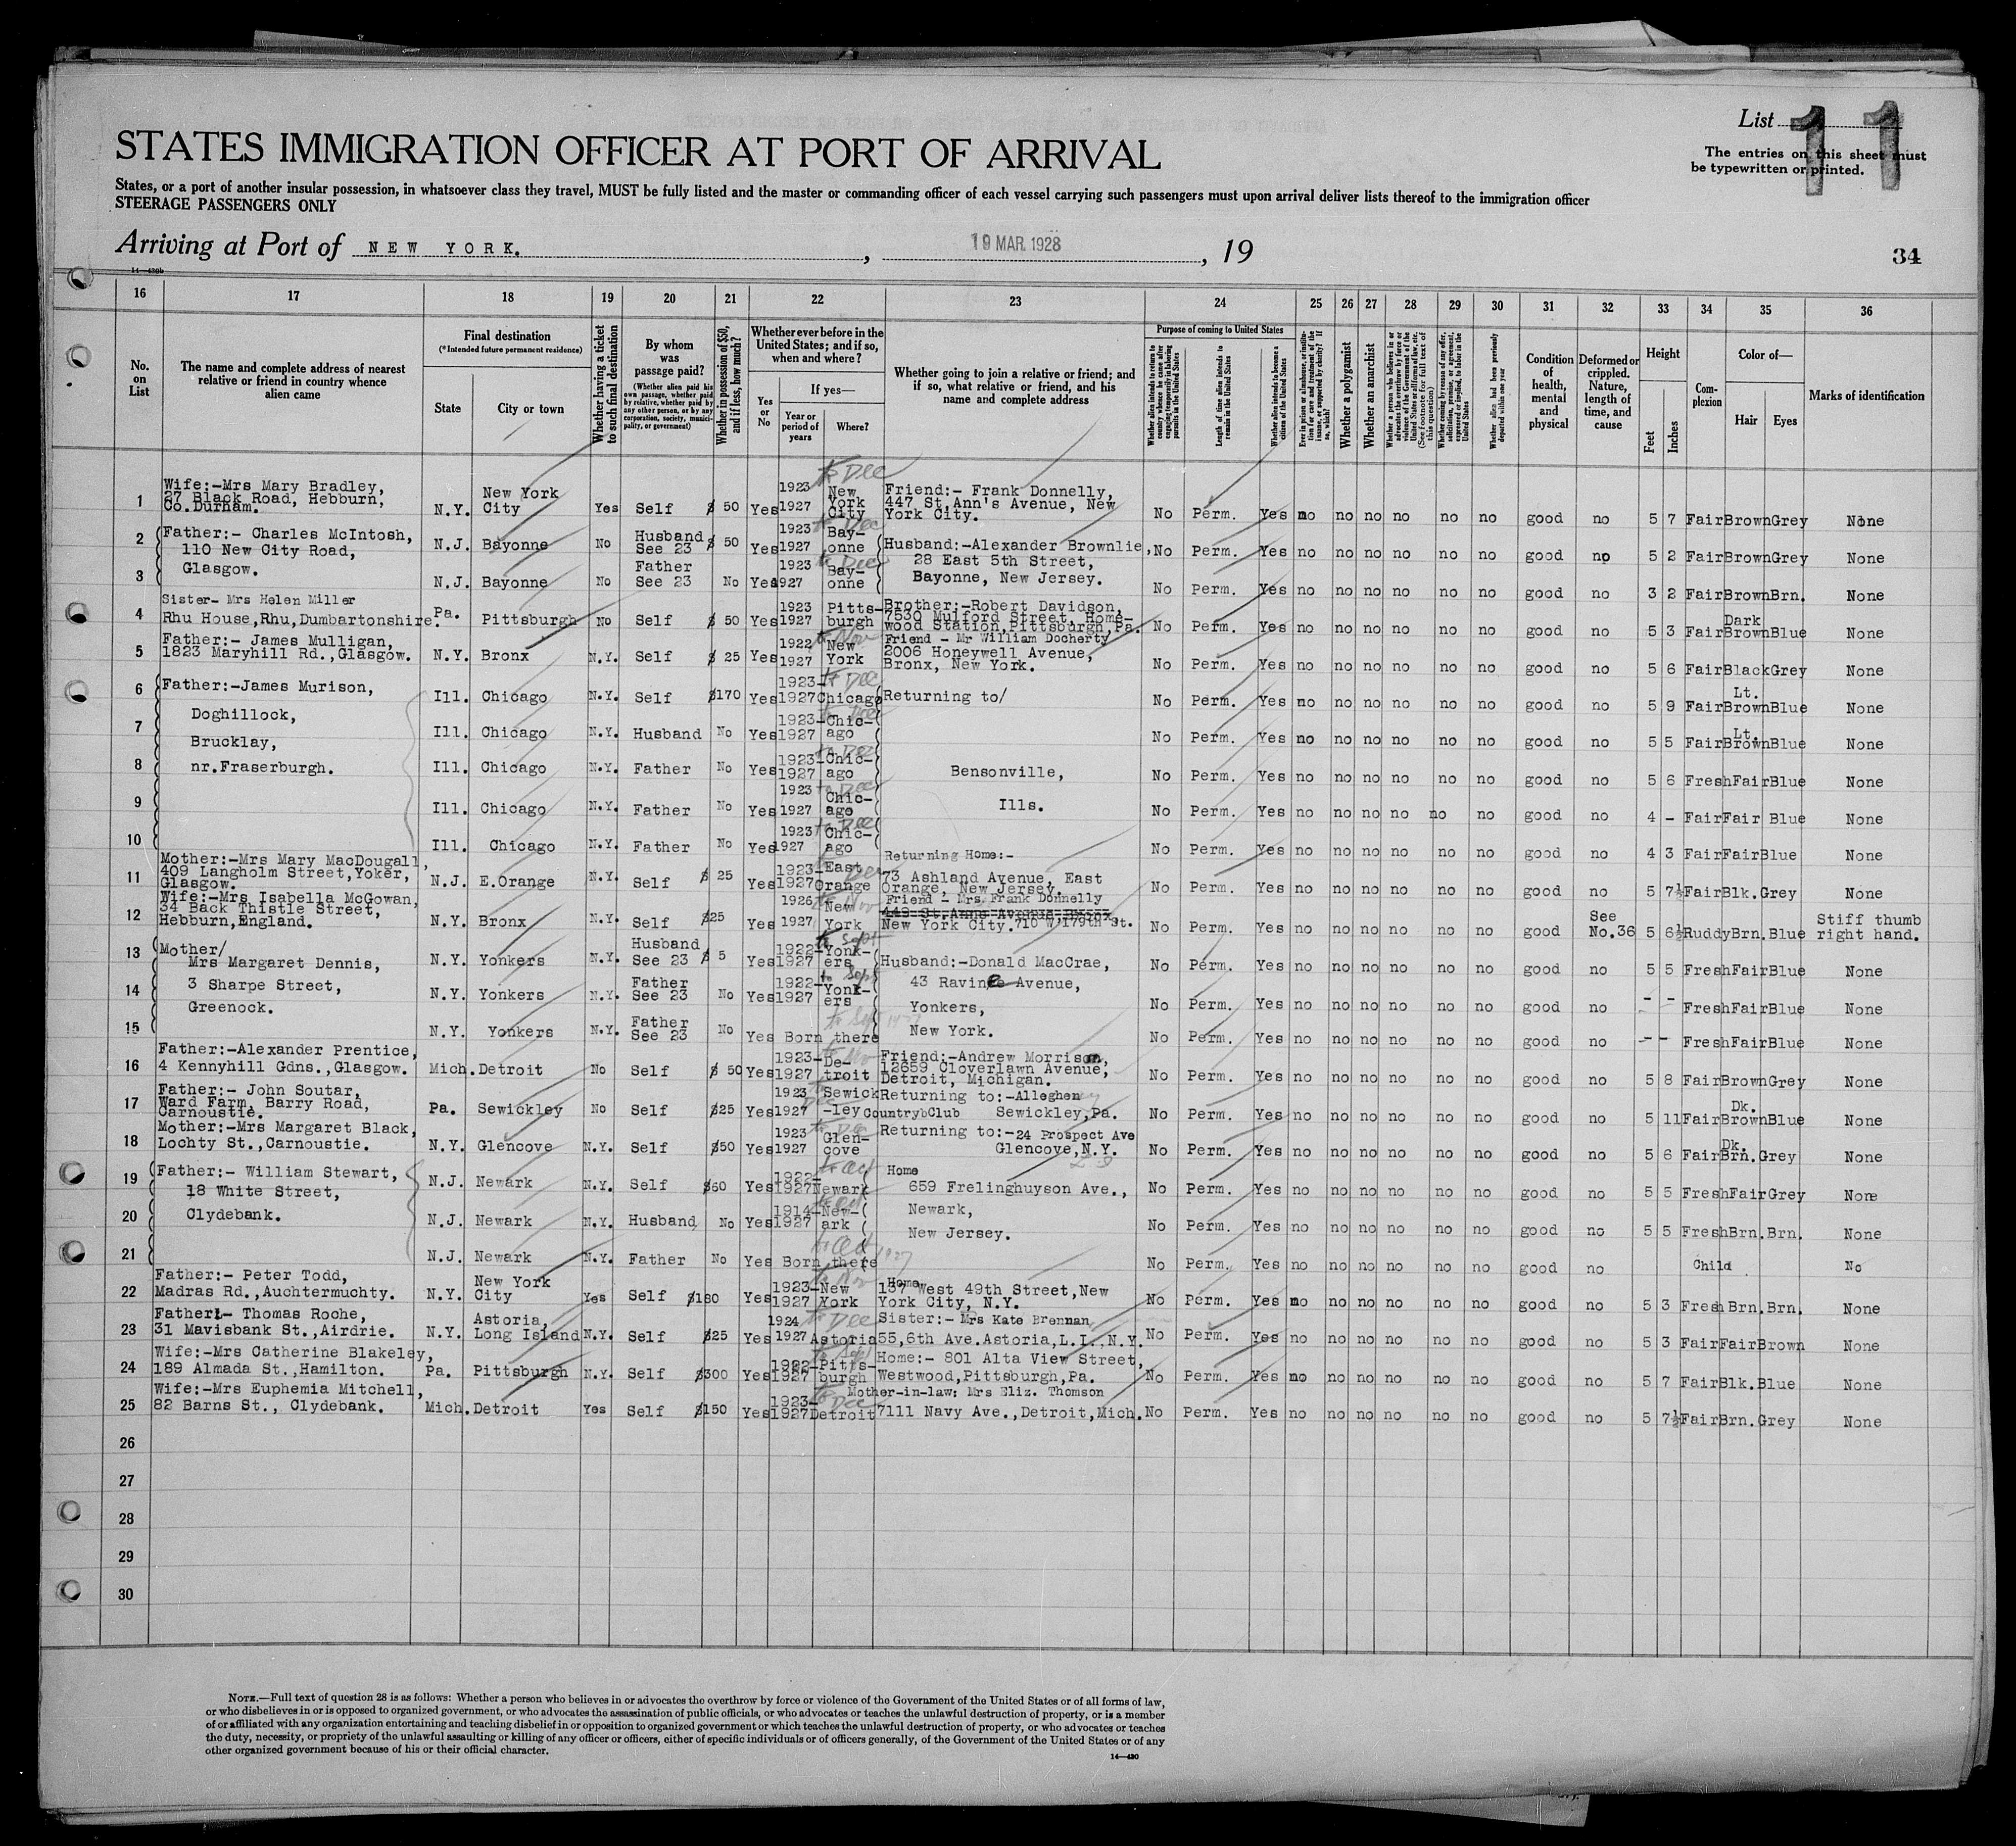 List 11
The entries on this sheet must
be typewritten or printed.
STATES IMMIGRATION OFFICER AT PORT OF ARRIVAL
States, or a port of another insular possession, in whatsoever class they travel, MUST be fully listed and the master or commanding officer of each vessel carrying such passengers must upon arrival deliver lists thereof to the immigration officer
STEERAGE PASSENGERS ONLY
Arriving at Port of NEW YORK. , 19 MAR. 1928 , 19
34
14—430b
16 17 18 19 20 21 22 23 24 25 26 27 28 29 30 31 32 33 34 35 36
No. on List
The name and complete address of nearest relative or friend in country whence alien came
Final destination
(*Intended future permanent residence)
State
City or town
Whether having a ticket to such final destination
By whom was passage paid?
(Whether alien paid his own passage, whether paid by relative, whether paid by any other person, or by any corporation, society, municipality, or government)
Whether in possession of $50, and if less, how much?
Whether ever before in the United States; and if so, when and where?
Yes or No
If yes—
Year or period of years
Where?
Whether going to join a relative or friend; and if so, what relative or friend, and his name and complete address
Purpose of coming to United States
Length of time alien intends to remain in the United States
Whether alien intends to become a citizen of the United States
Whether a polygamist
Whether an anarchist
Whether alien had been previously deported within one year
Condition of health, mental and physical
Deformed or crippled. Nature, length of time, and cause
Height
Feet
Inches
Complexion
Color of—
Hair
Eyes
Marks of identification
1 Wife:-Mrs Mary Bradley, 27 Black Road, Hebburn, Co.Durham. N.Y. New York City Yes Self $ 50 Yes 1923 1927 to Dec New York City Friend:- Frank Donnelly, 447 St.Ann's Avenue, New York City. No Perm. Yes no no no no no no good no 5 7 Fair Brown Grey None
2 Father:- Charles McIntosh, 110 New City Road, Glasgow. N.J. Bayonne No Husband See 23 $ 50 Yes 1923 1927 to Dec Bay-onne Husband:-Alexander Brownlie, 28 East 5th Street, Bayonne, New Jersey. No Perm. Yes no no no no no no good no 5 2 Fair Brown Grey None
3 N.J. Bayonne No Father See 23 No Yes 1923 1927 to Dec Bay-onne No Perm. Yes no no no no no no good no 3 2 Fair Brown Brn. None
4 Sister- Mrs Helen Miller Rhu House,Rhu,Dumbartonshire. Pa. Pittsburgh No Self $ 50 Yes 1923 1927 Pitts-burgh Brother:-Robert Davidson, 7530 Mulford Street, Home-wood Station,Pittsburgh,Pa. No Perm. Yes no no no no no no good no 5 3 Fair Dark Brown Blue None
5 Father:- James Mulligan, 1823 Maryhill Rd.,Glasgow. N.Y. Bronx N.Y. Self $ 25 Yes 1922 1927 to Nov New York Friend - Mr William Docherty 2006 Honeywell Avenue, Bronx, New York. No Perm. Yes no no no no no no good no 5 6 Fair Black Grey None
6 Father:-James Murison, Doghillock, Brucklay, nr.Fraserburgh. Ill. Chicago N.Y. Self $170 Yes 1923- 1927 to Dec Chicago Returning to/ No Perm. Yes no no no no no no good no 5 9 Fair Lt. Brown Blue None
7 Ill. Chicago N.Y. Husband No Yes 1923- 1927 to Dec Chic-ago No Perm. Yes no no no no no no good no 5 5 Fair Lt. Brown Blue None
8 Ill. Chicago N.Y. Father No Yes 1923- 1927 to Dec Chic-ago Bensonville, No Perm. Yes no no no no no no good no 5 6 Fresh Fair Blue None
9 Ill. Chicago N.Y. Father No Yes 1923 1927 to Dec Chic-ago Ills. No Perm. Yes no no no no no no good no 4 - Fair Fair Blue None
10 Ill. Chicago N.Y. Father No Yes 1923 1927 to Dec Chic-ago No Perm. Yes no no no no no no good no 4 3 Fair Fair Blue None
11 Mother:-Mrs Mary MacDougall, 409 Langholm Street,Yoker, Glasgow. N.J. E.Orange N.Y. Self $ 25 Yes 1923- 1927 to Dec East Orange Returning Home:- 73 Ashland Avenue, East Orange, New Jersey. No Perm. Yes no no no no no no good no 5 7½ Fair Blk. Grey None
12 Wife:-Mrs Isabella McGowan, 34 Back Thistle Street, Hebburn,England. N.Y. Bronx N.Y. Self $25 Yes 1926 1927 to Nov New York Friend - Mrs Frank Donnelly New York City. 710 W.179th St. No Perm. Yes no no no no no no good See No.36 5 6½ Ruddy Brn. Blue Stiff thumb right hand.
13 Mother/ Mrs Margaret Dennis, 3 Sharpe Street, Greenock. N.Y. Yonkers N.Y. Husband See 23 $ 5 Yes 1922- 1927 to Sept Yonk-ers Husband:-Donald MacCrae, No Perm. Yes no no no no no no good no 5 5 Fresh Fair Blue None
14 N.Y. Yonkers N.Y. Father See 23 No Yes 1922- 1927 to Sept Yonk-ers 43 Ravine Avenue, Yonkers, No Perm. Yes no no no no no no good no - - Fresh Fair Blue None
15 N.Y. Yonkers N.Y. Father See 23 No Yes Born there to Sep 1927 New York. No Perm. Yes no no no no no no good no - - Fresh Fair Blue None
16 Father:-Alexander Prentice, 4 Kennyhill Gdns.,Glasgow. Mich. Detroit No Self $ 50 Yes 1923- 1927 to Nov De-troit Friend:-Andrew Morrison, 12659 Cloverlawn Avenue, Detroit, Michigan. No Perm. Yes no no no no no no good no 5 8 Fair Brown Grey None
17 Father:- John Soutar, Ward Farm, Barry Road, Carnoustie. Pa. Sewickley No Self $25 Yes 1923 1927 to Dec Sewick-ley Returning to:-Alleghen Country Club Sewickley,Pa. No Perm. Yes no no no no no no good no 5 11 Fair Dk. Brown Blue None
18 Mother:-Mrs Margaret Black, Lochty St.,Carnoustie. N.Y. Glencove N.Y. Self $50 Yes 1923 1927 to Dec Glen-cove Returning to:-24 Prospect Ave Glencove,N.Y. No Perm. Yes no no no no no no good no 5 6 Fair Dk. Brn. Grey None
19 Father:- William Stewart, 18 White Street, Clydebank. N.J. Newark N.Y. Self $60 Yes 1922- 1927 to Oct Newark Home 659 Frelinghuyson Ave., No Perm. Yes no no no no no no good no 5 5 Fresh Fair Grey None
20 N.J. Newark N.Y. Husband No Yes 1914- 1927 to Oct New-ark Newark, New Jersey. No Perm. Yes no no no no no no good no 5 5 Fresh Brn. Brn. None
21 N.J. Newark N.Y. Father No Yes Born there to Oct 1927 No Perm. Yes no no no no no no good no Child No
22 Father:- Peter Todd, Madras Rd.,Auchtermuchty. N.Y. New York City Yes Self $180 Yes 1923- 1927 to Nov New York Home 137 West 49th Street,New York City, N.Y. No Perm. Yes no no no no no no good no 5 3 Fresh Brn. Brn. None
23 Father:- Thomas Roche, 31 Mavisbank St.,Airdrie. N.Y. Astoria, Long Island N.Y. Self $25 Yes 1924 1927 to Dec Astoria Sister:- Mrs Kate Brennan, 55,6th Ave.Astoria,L.I.,N.Y. No Perm. Yes no no no no no no good no 5 3 Fair Fair Brown None
24 Wife:-Mrs Catherine Blakeley, 189 Almada St.,Hamilton. Pa. Pittsburgh N.Y. Self $300 Yes 1922- 1927 to Sept Pitts-burgh Home:- 801 Alta View Street, Westwood,Pittsburgh,Pa. No Perm. Yes no no no no no no good no 5 7 Fair Blk. Blue None
25 Wife:-Mrs Euphemia Mitchell, 82 Barns St., Clydebank. Mich. Detroit Yes Self $150 Yes 1923- 1927 to Dec Detroit Mother-in-law: Mrs Eliz. Thomson 7111 Navy Ave.,Detroit,Mich. No Perm. Yes no no no no no no good no 5 7½ Fair Brn. Grey None
26
27
28
29
30
NOTE.—Full text of question 28 is as follows: Whether a person who believes in or advocates the overthrow by force or violence of the Government of the United States or of all forms of law,
or who disbelieves in or is opposed to organized government, or who advocates the assassination of public officials, or who advocates or teaches the unlawful destruction of property, or is a member
of or affiliated with any organization entertaining and teaching disbelief in or opposition to organized government or which teaches the unlawful destruction of property, or who advocates or teaches
the duty, necessity, or propriety of the unlawful assaulting or killing of any officer or officers, either of specific individuals or of officers generally, of the Government of the United States or of any
other organized government because of his or their official character.
14—430